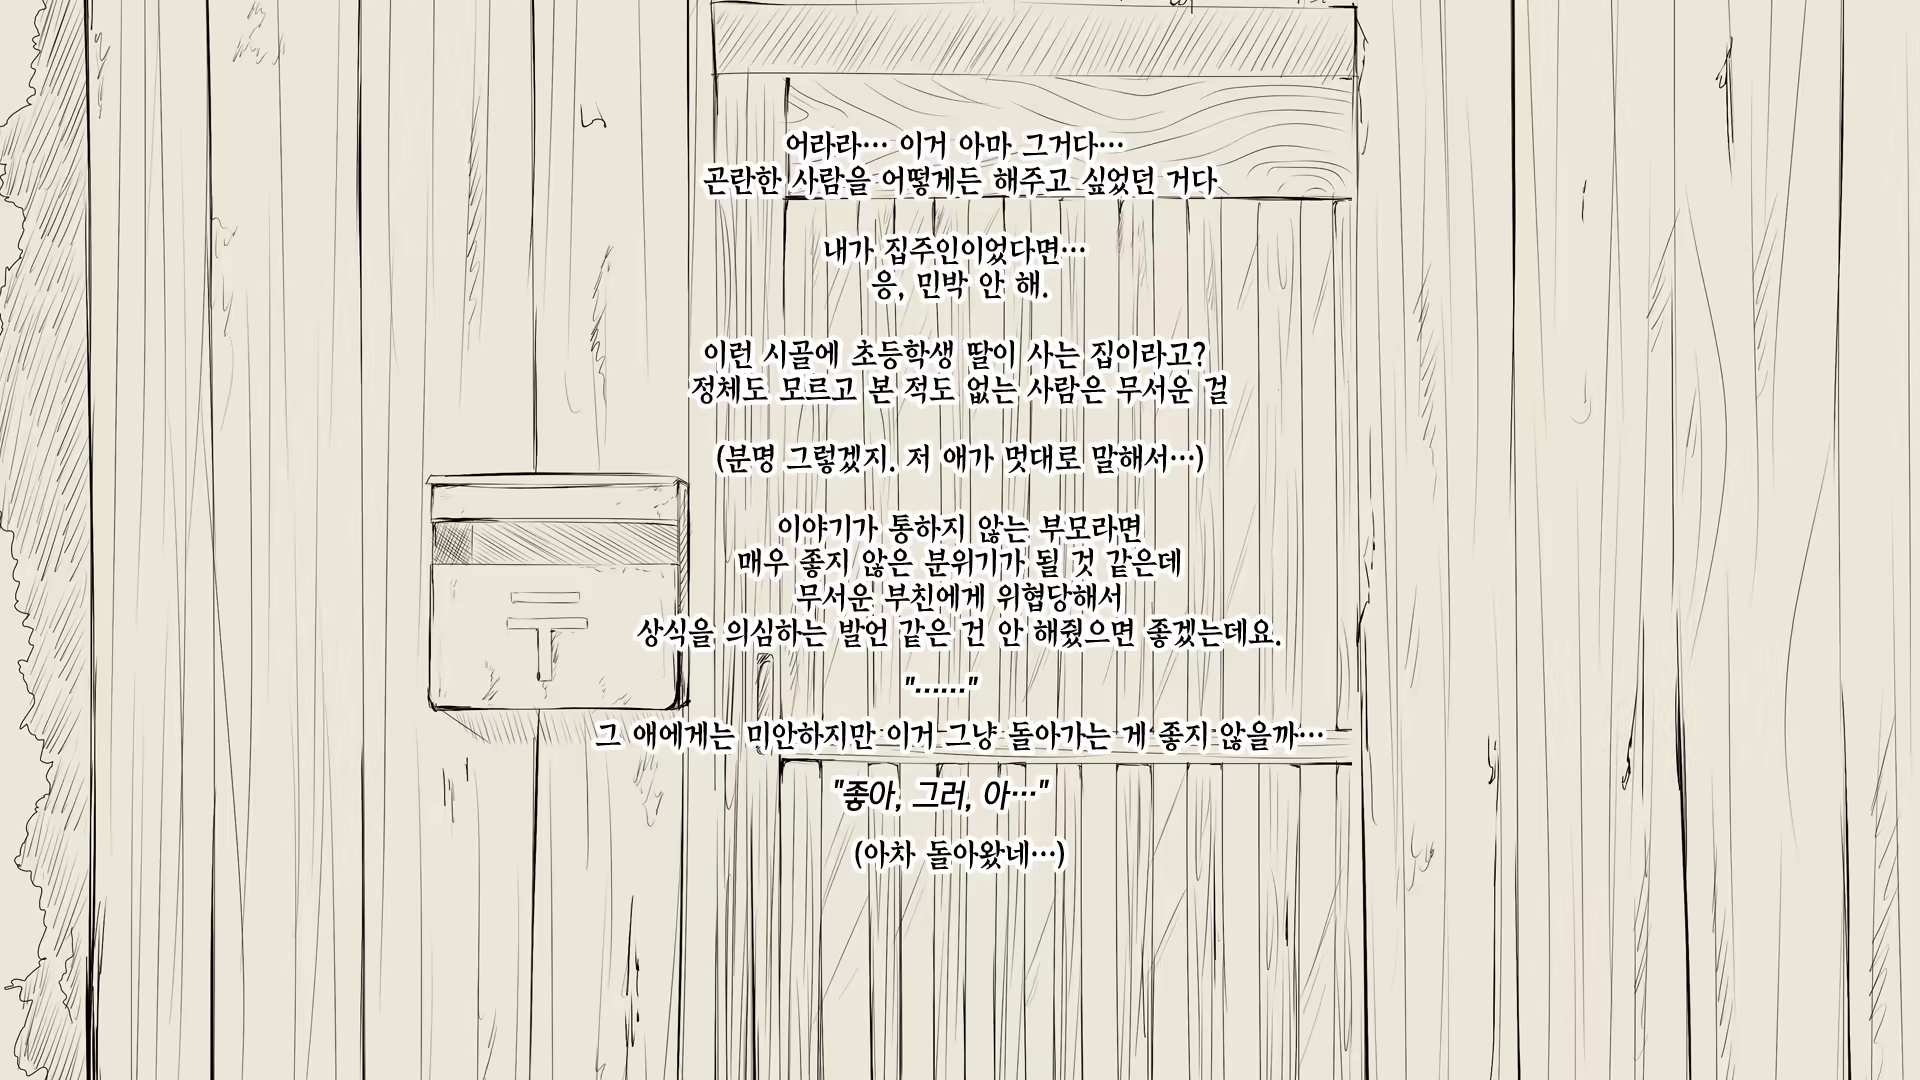 어라라… 이거 아마 그거다…
곤란한 사람을 어떻게든 해주고 싶었던 거다
내가 집주인이었다면…
응, 민박 안 해.
이런 시골에 초등학생 딸이 사는 집이라고?
정체도 모르고 본 적도 없는 사람은 무서운 걸
(분명 그렇겠지. 저 애가 멋대로 말해서…)
이야기가 통하지 않는 부모라면
매우 좋지 않은 분위기가 될 것 같은데
무서운 부친에게 위협당해서
상식을 의심하는 발언 같은 건 안 해줬으면 좋겠는데요.
"……"
그 애에게는 미안하지만 이거 그냥 돌아가는 게 좋지 않을까…
"좋아, 그러, 아…"
(아차 돌아왔네…)